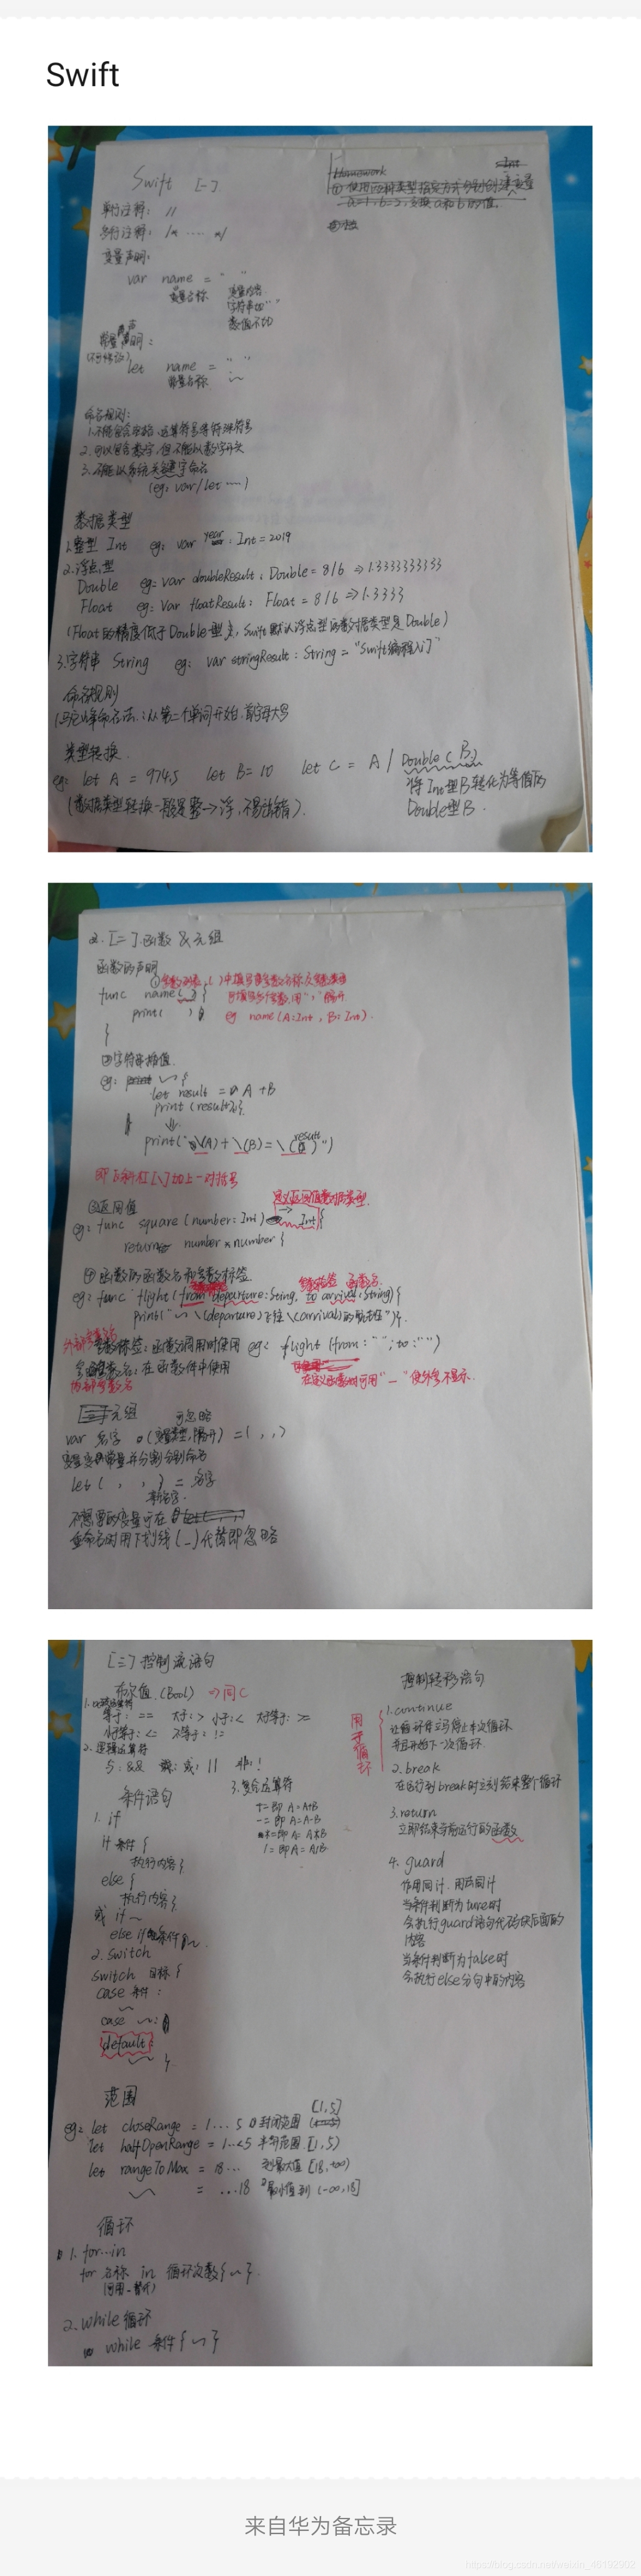 Swift
Swift [一].
Homework
单行注释: //
多行注释: /* ..... */
变量声明:
var name = " "
变量名称
变量内容
字符串加" "
数值不加
常量声明:
(不可修改)
let name = " "
常量名称
命名规则:
1.不能包含空格、运算符号等特殊符号
2.可以包含数字,但不能以数字开头
3.不能以系统关键字命名
(eg: var/let ....)
数据类型
1.整型 Int eg: var year: Int = 2019
2.浮点型
Double eg: var doubleResult: Double = 8/6 ⇒1.3333333333
Float eg: Var floatResult: Float = 8/6 ⇒1.3333
(Float的精度低于Double型, Swift默认浮点型的数据类型是Double)
3.字符串 String eg: var stringResult: String = "Swift编程入门"
命名规则
1.驼峰命名法:从第二个单词开始,首字母大写
类型转换.
eg: let A = 974.5 let B= 10 let C = A / Double(B)
将Int型B转化为等值的
Double型B.
(数据类型转换一般是整→浮,不易出错).
2.[二].函数&元组
函数的声明
func name( ) {
print( )
}
eg name(A:Int, B:Int).
②字符串插值.
let result = A +B
print(result)}.
print("\(A) + \(B) = \(result)")
即 反斜杠[\]加上一对括号
③返回值
定义返回值数据类型.
eg: func square (number: Int) → Int{
return number*number }
④函数的函数名和参数标签
eg: func flight (from departure: Sting, to arrival: String){
外部参数名
参数标签:函数调用时使用 eg: flight (from: " "; to: " ")
参数名:在函数体中使用
内部参数名
在定义函数时可用"_"使外参不显示.
元组 可忽略
let ( , , ) = 名字
新名字.
不想要的变量可在
重命名时用下划线(_)代替即忽略
[三]控制流语句
布尔值.(Bool) ⇒同C
1.比较运算符
等于: == 大于: > 小于: < 大于等于: >=
小于等于: <= 不等于: !=
2.逻辑运算符
与: && 或: || 非: !
3.复合运算符
+= 即 A=A+B
-= 即 A=A-B
*= 即 A= A*B
/= 即 A=A/B
条件语句
1. if
if 条件 {
执行内容}
else {
执行内容}
或 if ~
else if 条件{~
2. switch
switch 目标 {
case 条件 :
~
case ~:
default:
~ }.
范围
eg: let closeRange = 1... 5 封闭范围 [1,5]
let halfOpenRange = 1..<5 半开范围. [1, 5)
let rangeToMax = 18... 到最大值 [18,+∞)
~ = ...18 最小值到 (-∞,18]
循环
1. for...in
for 名称 in 循环次数{~}.
(可用_替代)
2.while循环
while 条件{~}
控制转移语句
用于循环
1.continue
让循环体立马停止本次循环
并且开始下一次循环.
2.break
在运行到break时立刻结束整个循环
3.return
立即结束当前运行的函数
4. guard
当条件判断为ture时
会执行guard语句代码块后面的
内容
当条件判断为false时
会执行else分句中的内容
来自华为备忘录
https://blog.csdn.net/weixin_46192992